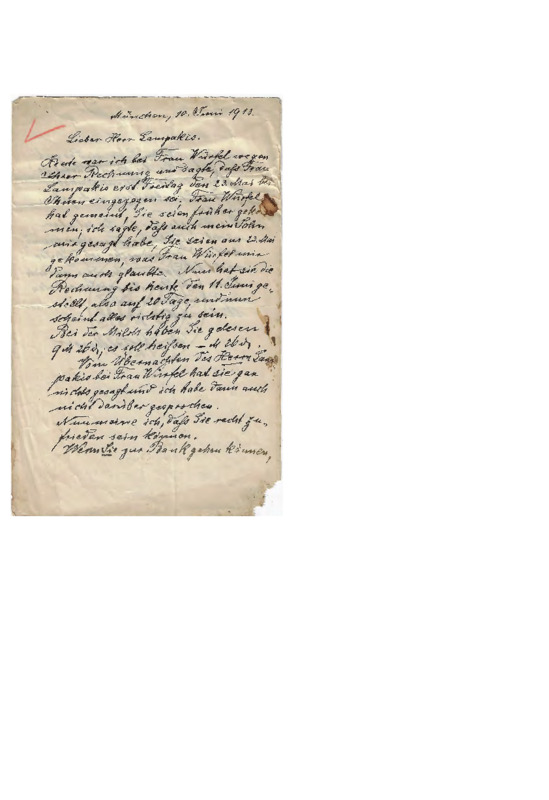 München, 10. Juni 1913.
Lieber Herr Lampakis.
Heute war ich bei Frau Würfel wegen
Ihrer Rechnung und sagte, daß Frau
Lampakis erst Freitag den 23. Mai bei
Ihnen eingezogen sei. Frau Würfel
hat gemeint, Sie seien früher gekom-
men; ich sagte, daß auch mein Sohn
mir gesagt habe, Sie seien am 23. Mai
gekommen, was Frau Würfel mir
dann auch glaubte. Nun hat sie die
Rechnung bis heute den 11. Juni ge-
stellt, also auf 20 Tage, und nun
scheint alles richtig zu sein.
Bei der Milch haben Sie gelesen
9 M 26 ₰, es soll heißen – M 26 ₰.
Vom Übernachten des Herrn Lam-
pakis bei Frau Würfel hat sie gar
nichts gesagt und ich habe dann auch
nicht darüber gesprochen.
Nun meine ich, daß Sie recht zu-
frieden sein können.
Wenn Sie zur Bank gehen können,